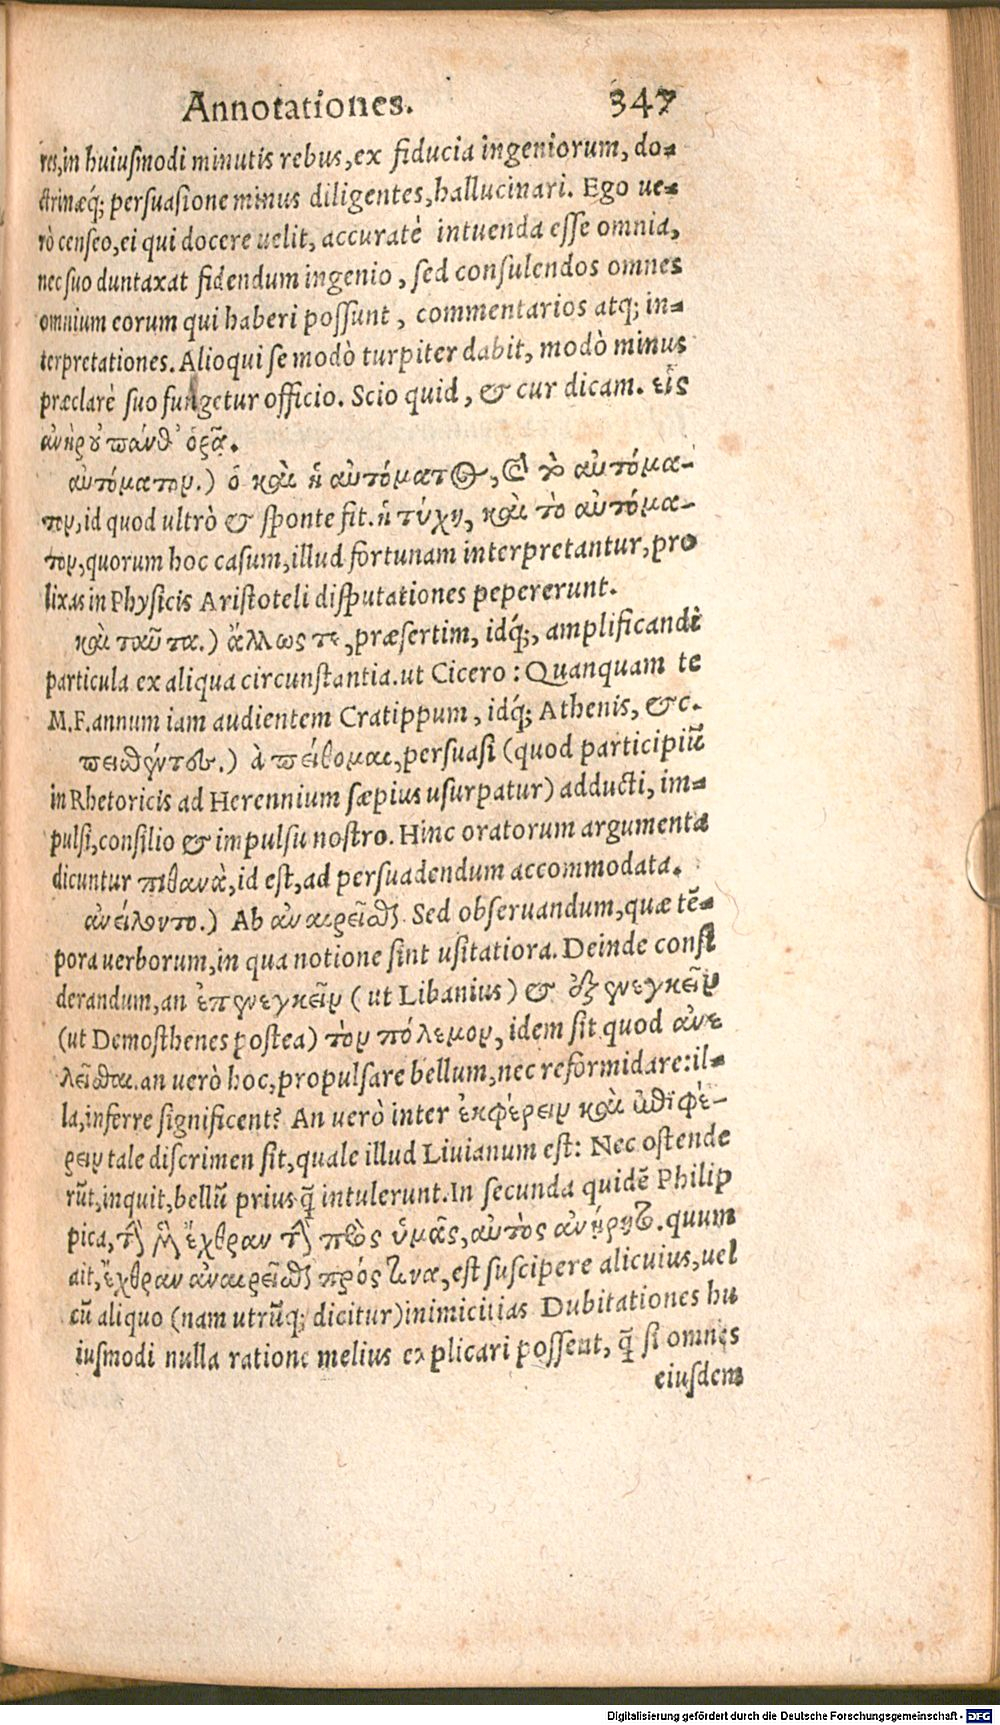 Annotationes. 347
res, in huiusmodi minutis rebus, ex fiducia ingeniorum, do-
ctrinæq́; persuasione minus diligentes, hallucinari. Ego ue-
rò censeo, ei qui docere uelit, accuratè intuenda esse omnia,
nec suo duntaxat fidendum ingenio, sed consulendos omnes
omnium eorum qui haberi possunt, commentarios atq; in-
terpretationes. Alioqui se modò turpiter dabit, modò minus
præclarè suo fungetur officio. Scio quid, & cur dicam. εἷς
ἀνὴρ οὐ πάνθ' ὁρᾷ.
αὐτόματον.) ὁ καὶ ἡ αὐτόματος, καὶ τὸ αὐτόμα-
τον, id quod ultrò & sponte fit. ἡ τύχη, καὶ τὸ αὐτόμα-
τον, quorum hoc casum, illud fortunam interpretantur, pro
lixas in Physicis Aristoteli disputationes pepererunt.
καὶ ταῦτα.) ἄλλως τε, præsertim, idq́;, amplificandi
particula ex aliqua circunstantia. ut Cicero: Quanquam te
M. F. annum iam audientem Cratippum, idq́; Athenis, &c.
πεισθέντες.) ἀ πείθομαι, persuasi (quod participiũ
in Rhetoricis ad Herennium sæpius usurpatur) adducti, im-
pulsi, consilio & impulsu nostro. Hinc oratorum argumenta
dicuntur πιθανὰ, id est, ad persuadendum accommodata.
ἀνείλοντο.) Ab ἀναιρεῖσθαι. Sed obseruandum, quæ tẽ-
pora uerborum, in qua notione sint usitatiora. Deinde consi
derandum, an ἐπενεγκεῖν (ut Libanius) & ἐξενεγκεῖν
(ut Demosthenes postea) τὸν πόλεμον, idem sit quod ἀνε
λέσθαι. an uerò hoc, propulsare bellum, nec reformidare: il-
la, inferre significent? An uerò inter ἐκφέρειν καὶ ἐπιφέ-
ρειν tale discrimen sit, quale illud Liuianum est: Nec ostende
rũt, inquit, bellũ prius q̃ intulerunt. In secunda quidẽ Philip
pica, τὴν μὲν ἔχθραν τὴν πρὸς ὑμᾶς, αὐτὸς ἀνῄρητο. quum
ait, ἔχθραν ἀναιρεῖσθαι πρός τινα, est suscipere alicuius, uel
cũ aliquo (nam utrũq; dicitur) inimicitias Dubitationes hu
iusmodi nulla ratione melius explicari possent, q̃ si omnes
eiusdem
Digitalisierung gefördert durch die Deutsche Forschungsgemeinschaft - DFG